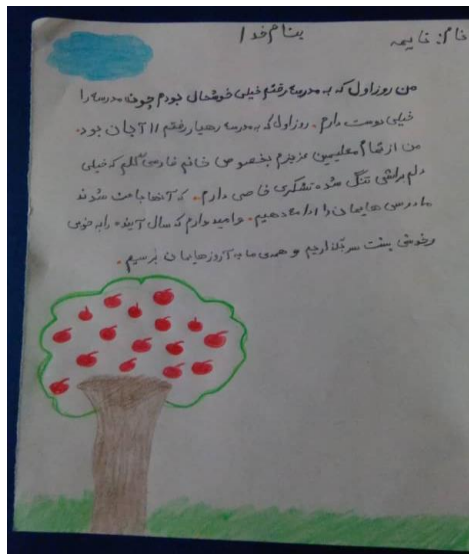 بنام خدا
نام: نایمه
من روز اول که به مدرسه رفتم خیلی خوشحال بودم چون مدرسه را
خیلی دوست دارم. روز اول که به مدرسه رهیار رفتم ۱۱ آبان بود.
من از تمام معلمین عزیزم بخصوص خانم فارسی گلم که خیلی
دلم براشی تنگ شده تشکری خاصی دارم. که آنها باعث شدند
ما درسی هایمان را ادامه دهیم. و امیدوارم که سال آینده را به خوبی
و خوشی پشت سر بگذاریم و همه‌ی ما به آرزوهایمان برسیم.